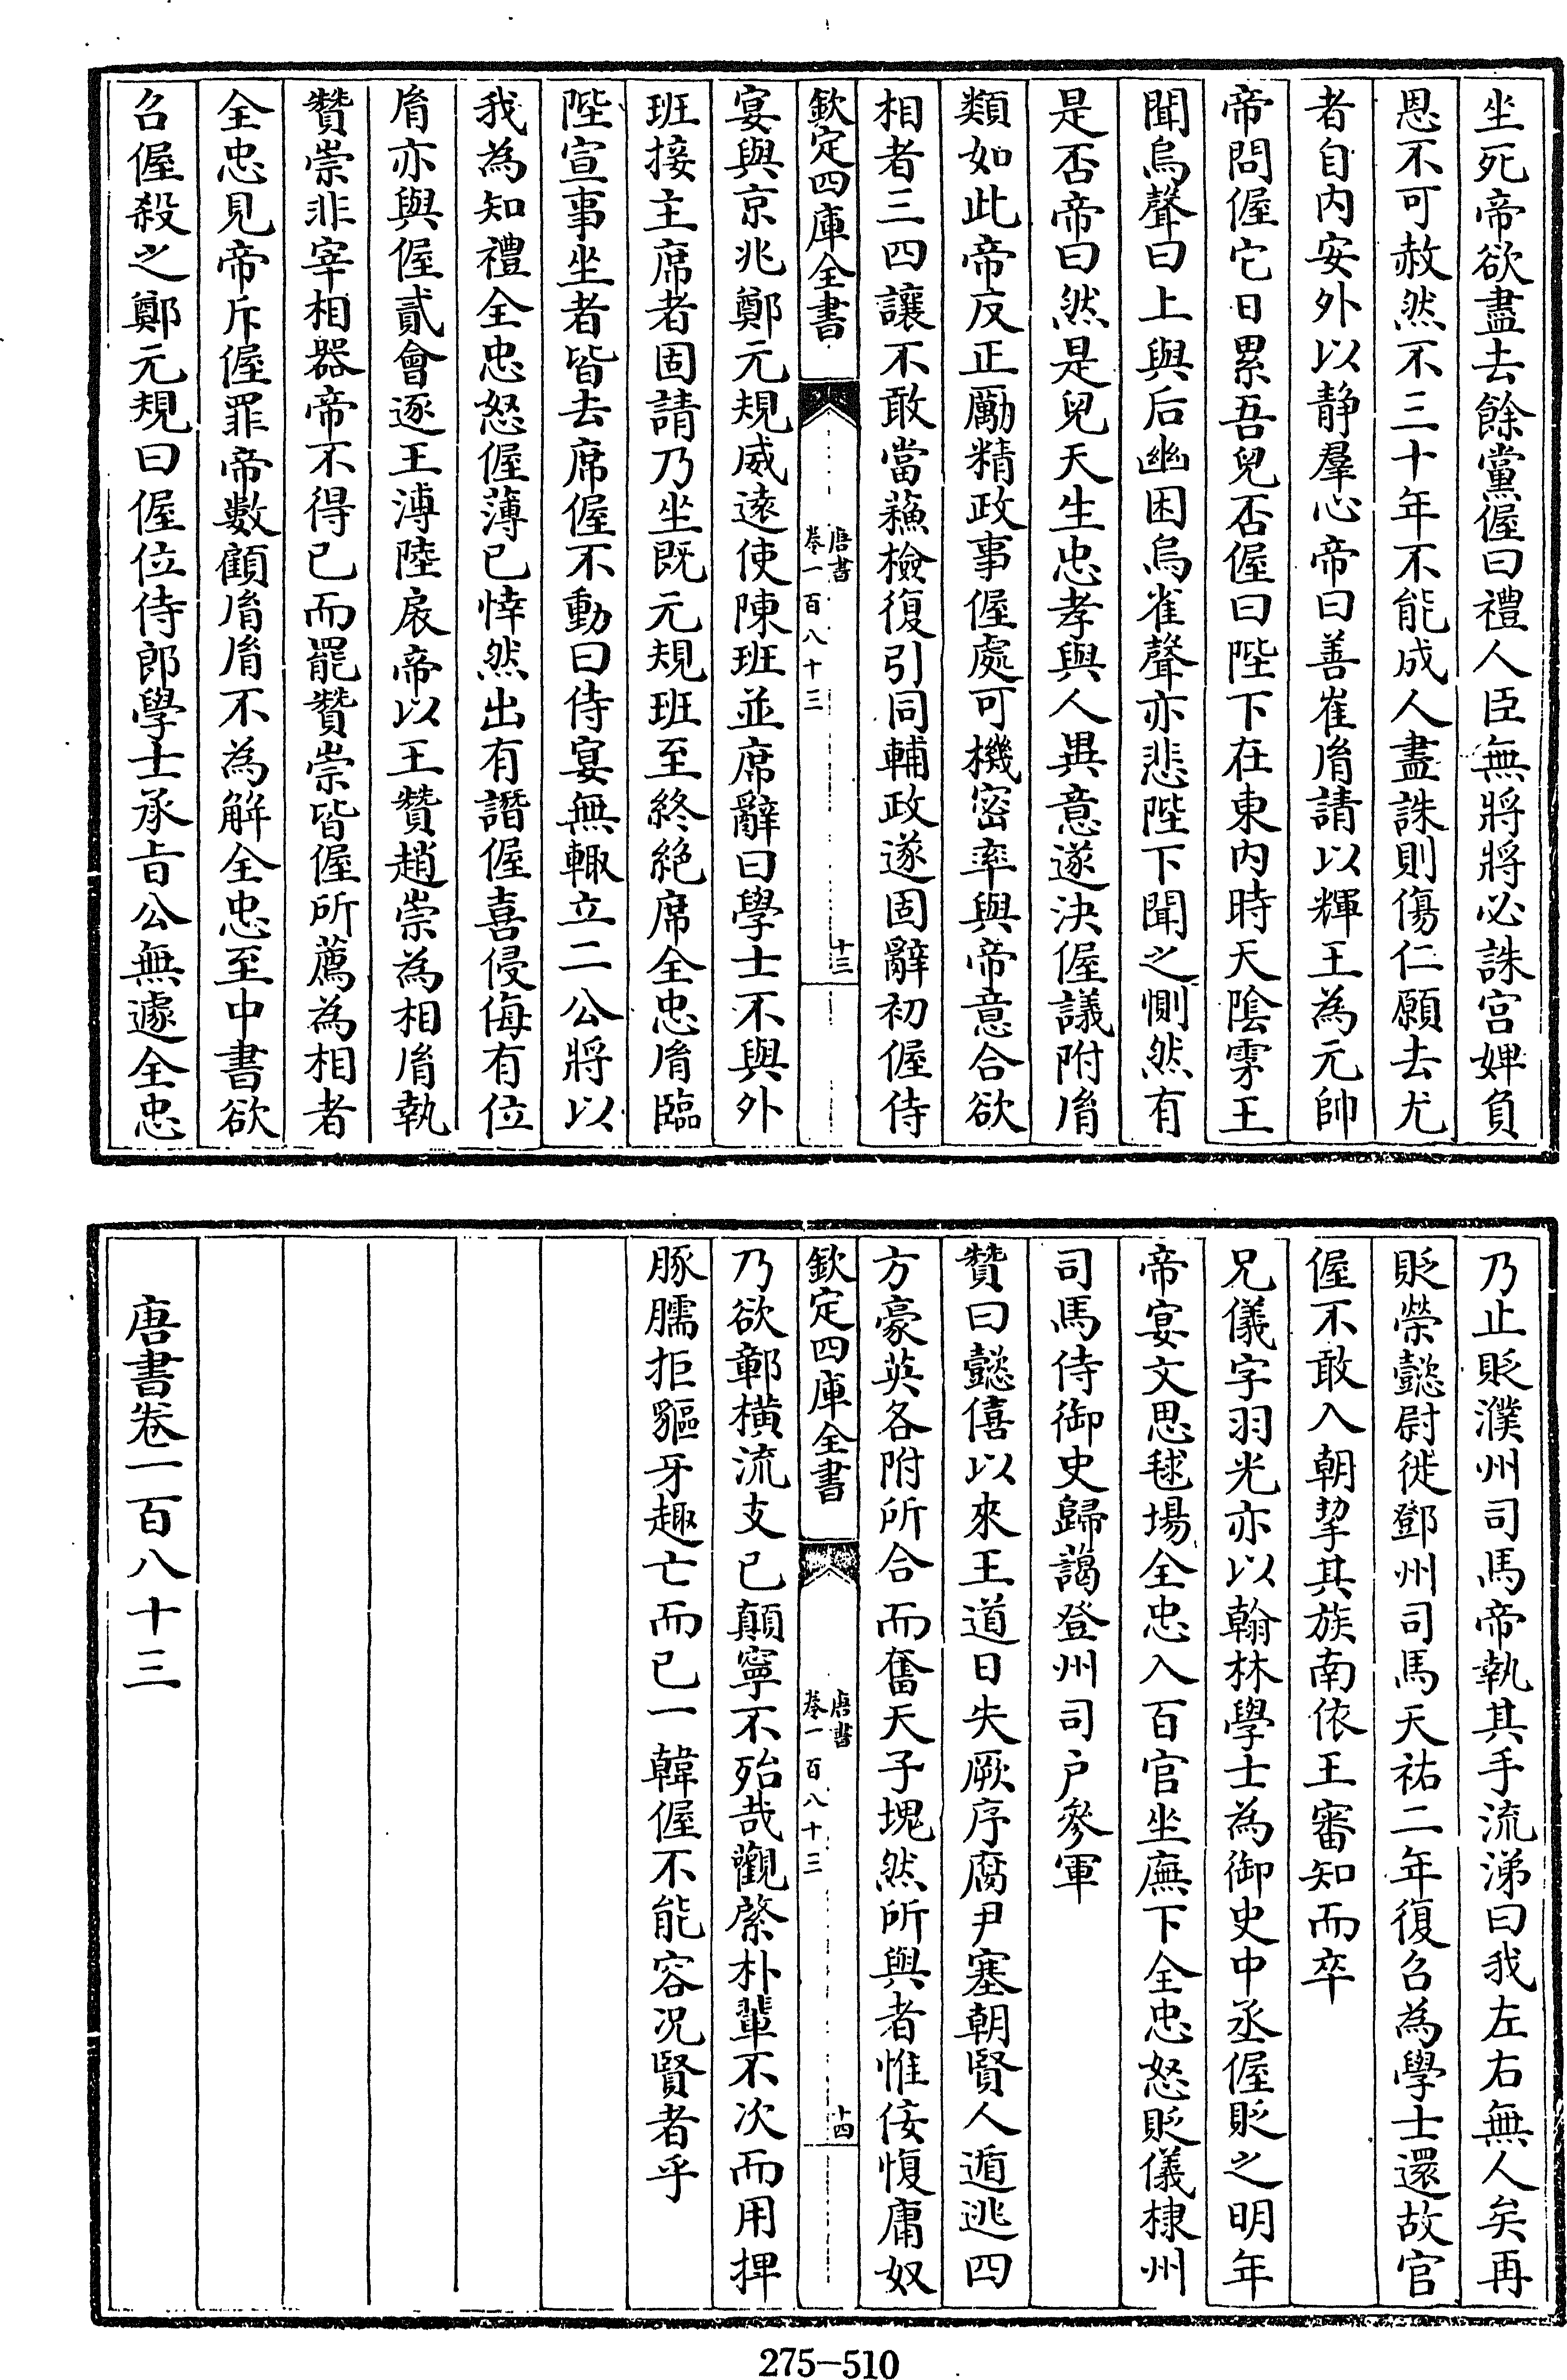 坐死帝欲盡去餘黨偓曰禮人臣無將將必誅宫婢負
恩不可赦然不三十年不能成人盡誅則傷仁願去尤
者自内安外以静羣心帝曰善崔胤請以輝王為元帥
帝問偓它日累吾兒否偓曰陛下在東内時天陰雺王
聞烏聲曰上與后幽困烏雀聲亦悲陛下聞之惻然有
是否帝曰然是兒天生忠孝與人異意遂決偓議附胤
類如此帝反正勵精政事偓處可機密率與帝意合欲
相者三四讓不敢當蘓檢復引同輔政遂固辭初偓侍
欽定四庫全書
唐書
卷一百八十三
十三
宴與京兆鄭元規威遠使陳班並席辭曰學士不與外
班接主席者固請乃坐既元規班至終絶席全忠胤臨
陛宣事坐者皆去席偓不動曰侍宴無輙立二公將以
我為知禮全忠怒偓薄已悻然出有譖偓喜侵侮有位
胤亦與偓貳會逐王溥陸扆帝以王贊趙崇為相胤執
贊崇非宰相器帝不得已而罷贊崇皆偓所薦為相者
全忠見帝斥偓罪帝數顧胤胤不為解全忠至中書欲
召偓殺之鄭元規曰偓位侍郎學士承旨公無遽全忠
乃止貶濮州司馬帝執其手流涕曰我左右無人矣再
貶榮懿尉徙鄧州司馬天祐二年復召為學士還故官
偓不敢入朝挈其族南依王審知而卒
兄儀字羽光亦以翰林學士為御史中丞偓貶之明年
帝宴文思毬場全忠入百官坐廡下全忠怒貶儀棣州
司馬侍御史歸藹登州司户參軍
贊曰懿僖以來王道日失厥序腐尹塞朝賢人遁逃四
方豪英各附所合而奮天子塊然所與者惟佞愎庸奴
欽定四庫全書
唐書
卷一百八十三
十四
乃欲鄣横流支已顛寧不殆哉觀綮朴輩不次而用捭
豚臑拒貙牙趣亡而已一韓偓不能容况賢者乎
唐書卷一百八十三
275-510